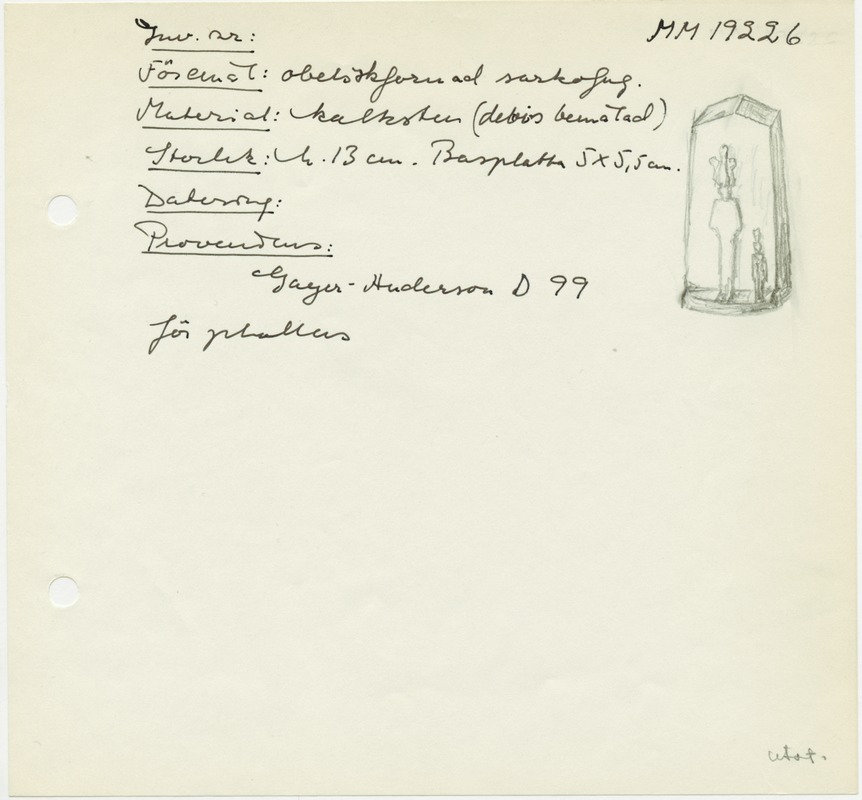 Inv. nr: MM 19226
Föremål: obeliskformad sarkofag.
Material: kalksten (delvis bemålad)
Storlek: h. 13 cm. Basplatta 5 x 5,5 cm.
Datering:
Proveniens:
Gayer-Anderson D 99
för phallus